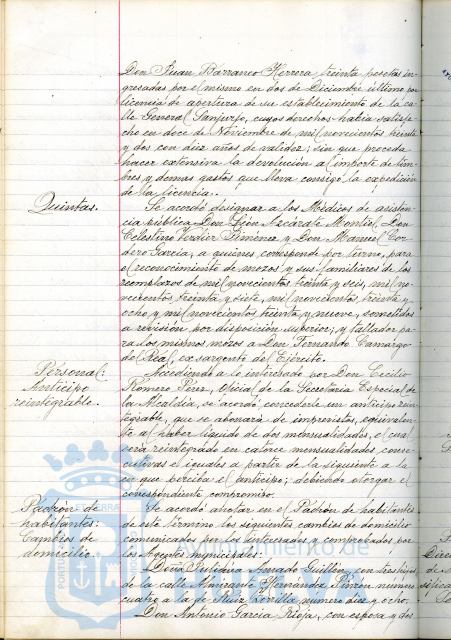 Don Juan Barranco Herrera treinta pesetas in-
gresadas por el mismo en dos de Diciembre último por
licencia de apertura de su establecimiento de la ca-
lle General Sanjurjo, cuyos derechos había satisfe-
cho en doce de Noviembre de mil novecientos treinta
y dos con diez años de validez; sin que proceda
hacer extensiva la devolución al importe de tim-
bres y demas gastos que lleva consigo la expedición
de la licencia.
Quintas.
Se acordó designar a los Médicos de asisten-
cia pública Don León Azcárate Montiel, Don
Celestino Verdier Jiménez y Don Manuel Cor-
dero García, a quienes corresponde por turno, para
el reconocimiento de mozos y sus familiares de los
reemplazos de mil novecientos treinta y seis, mil no-
vecientos treinta y siete, mil novecientos treinta y
ocho y mil novecientos treinta y nueve, sometidos
a revisión por disposición superior; y tallador pa-
ra los mismos mozos a Don Fernando Camargo
del Real, ex sargento del Ejército.
Personal:
Anticipo
reintegrable.
Accediendo a lo interesado por Don Cecilio
Romero Pérez, Oficial de la Secretaría Especial de
la Alcaldía, se acordó concederle un anticipo rein-
tegrable, que se abonará de imprevistos, equivalen-
te al haber líquido de dos mensualidades, el cual
será reintegrado en catorce mensualidades conse-
cutivas e iguales a partir de la siguiente a la
en que perciba el anticipo; debiendo otorgar el
correspondiente compromiso.
Padrón de
habitantes:
Cambios de
domicilio.
Se acordó anotar en el Padrón de habitantes
de este término los siguientes cambios de domicilio
comunicados por los interesados y comprobados por
los Agentes municipales:
Doña Eutiquia Amado Guillén, con tres hijos
de la calle Almirante Hernández Pinzón número
cuatro a la de Ruiz Zorrilla número diez y ocho.
Don Antonio García Rioja, con esposa y dos